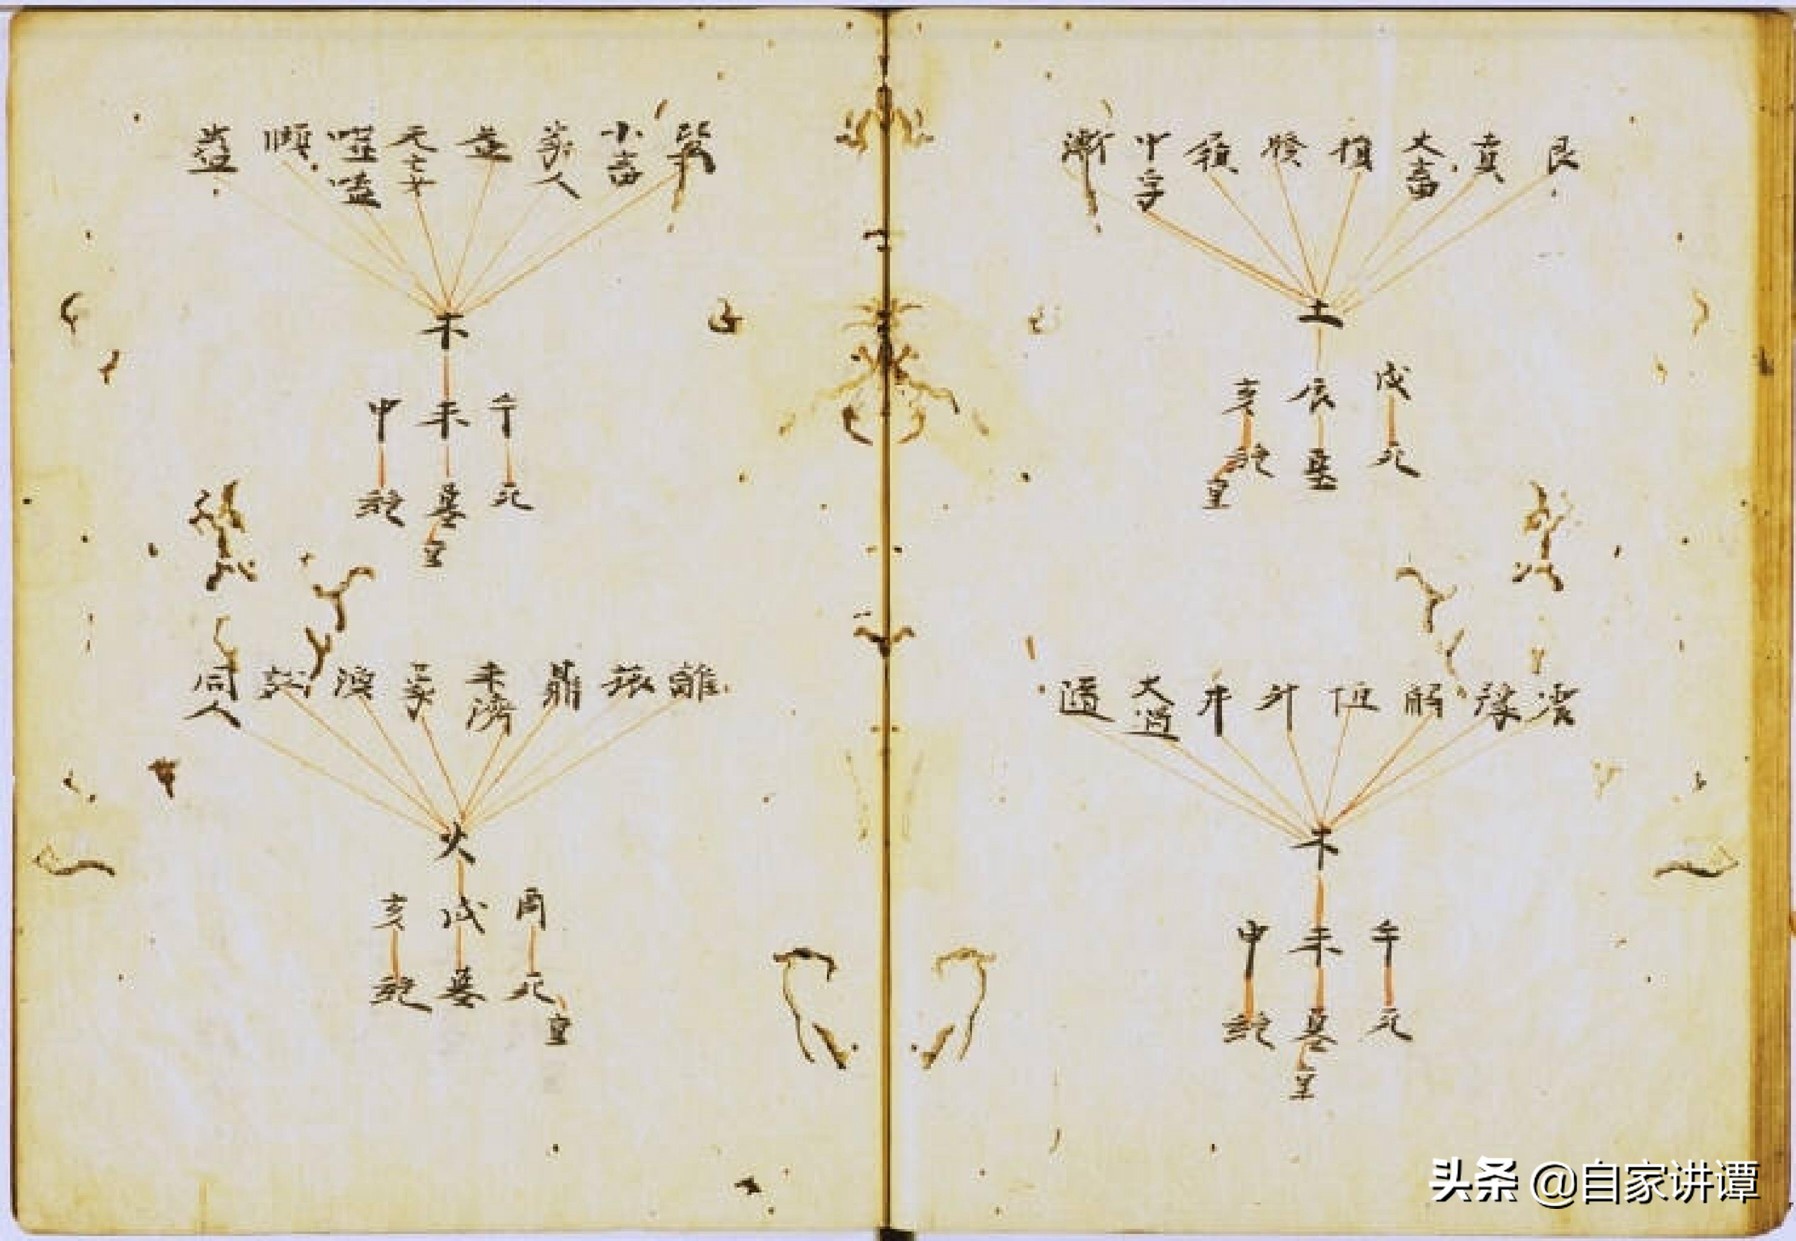 艮 賁 大畜 損 睽 中孚 漸
土
戌 辰 亥
死 墓 絶
空
震 豫 解 恒 升 井 大過 隨
木
午 未 申
死 墓 絶
空
巽 小畜 家人 益 无妄 噬嗑 頤 蠱
木
午 未 申
死 墓 絶
空
離 旅 鼎 未濟 蒙 渙 訟 同人
火
酉 戌 亥
死 墓 絶
空
头条 @自家讲谭